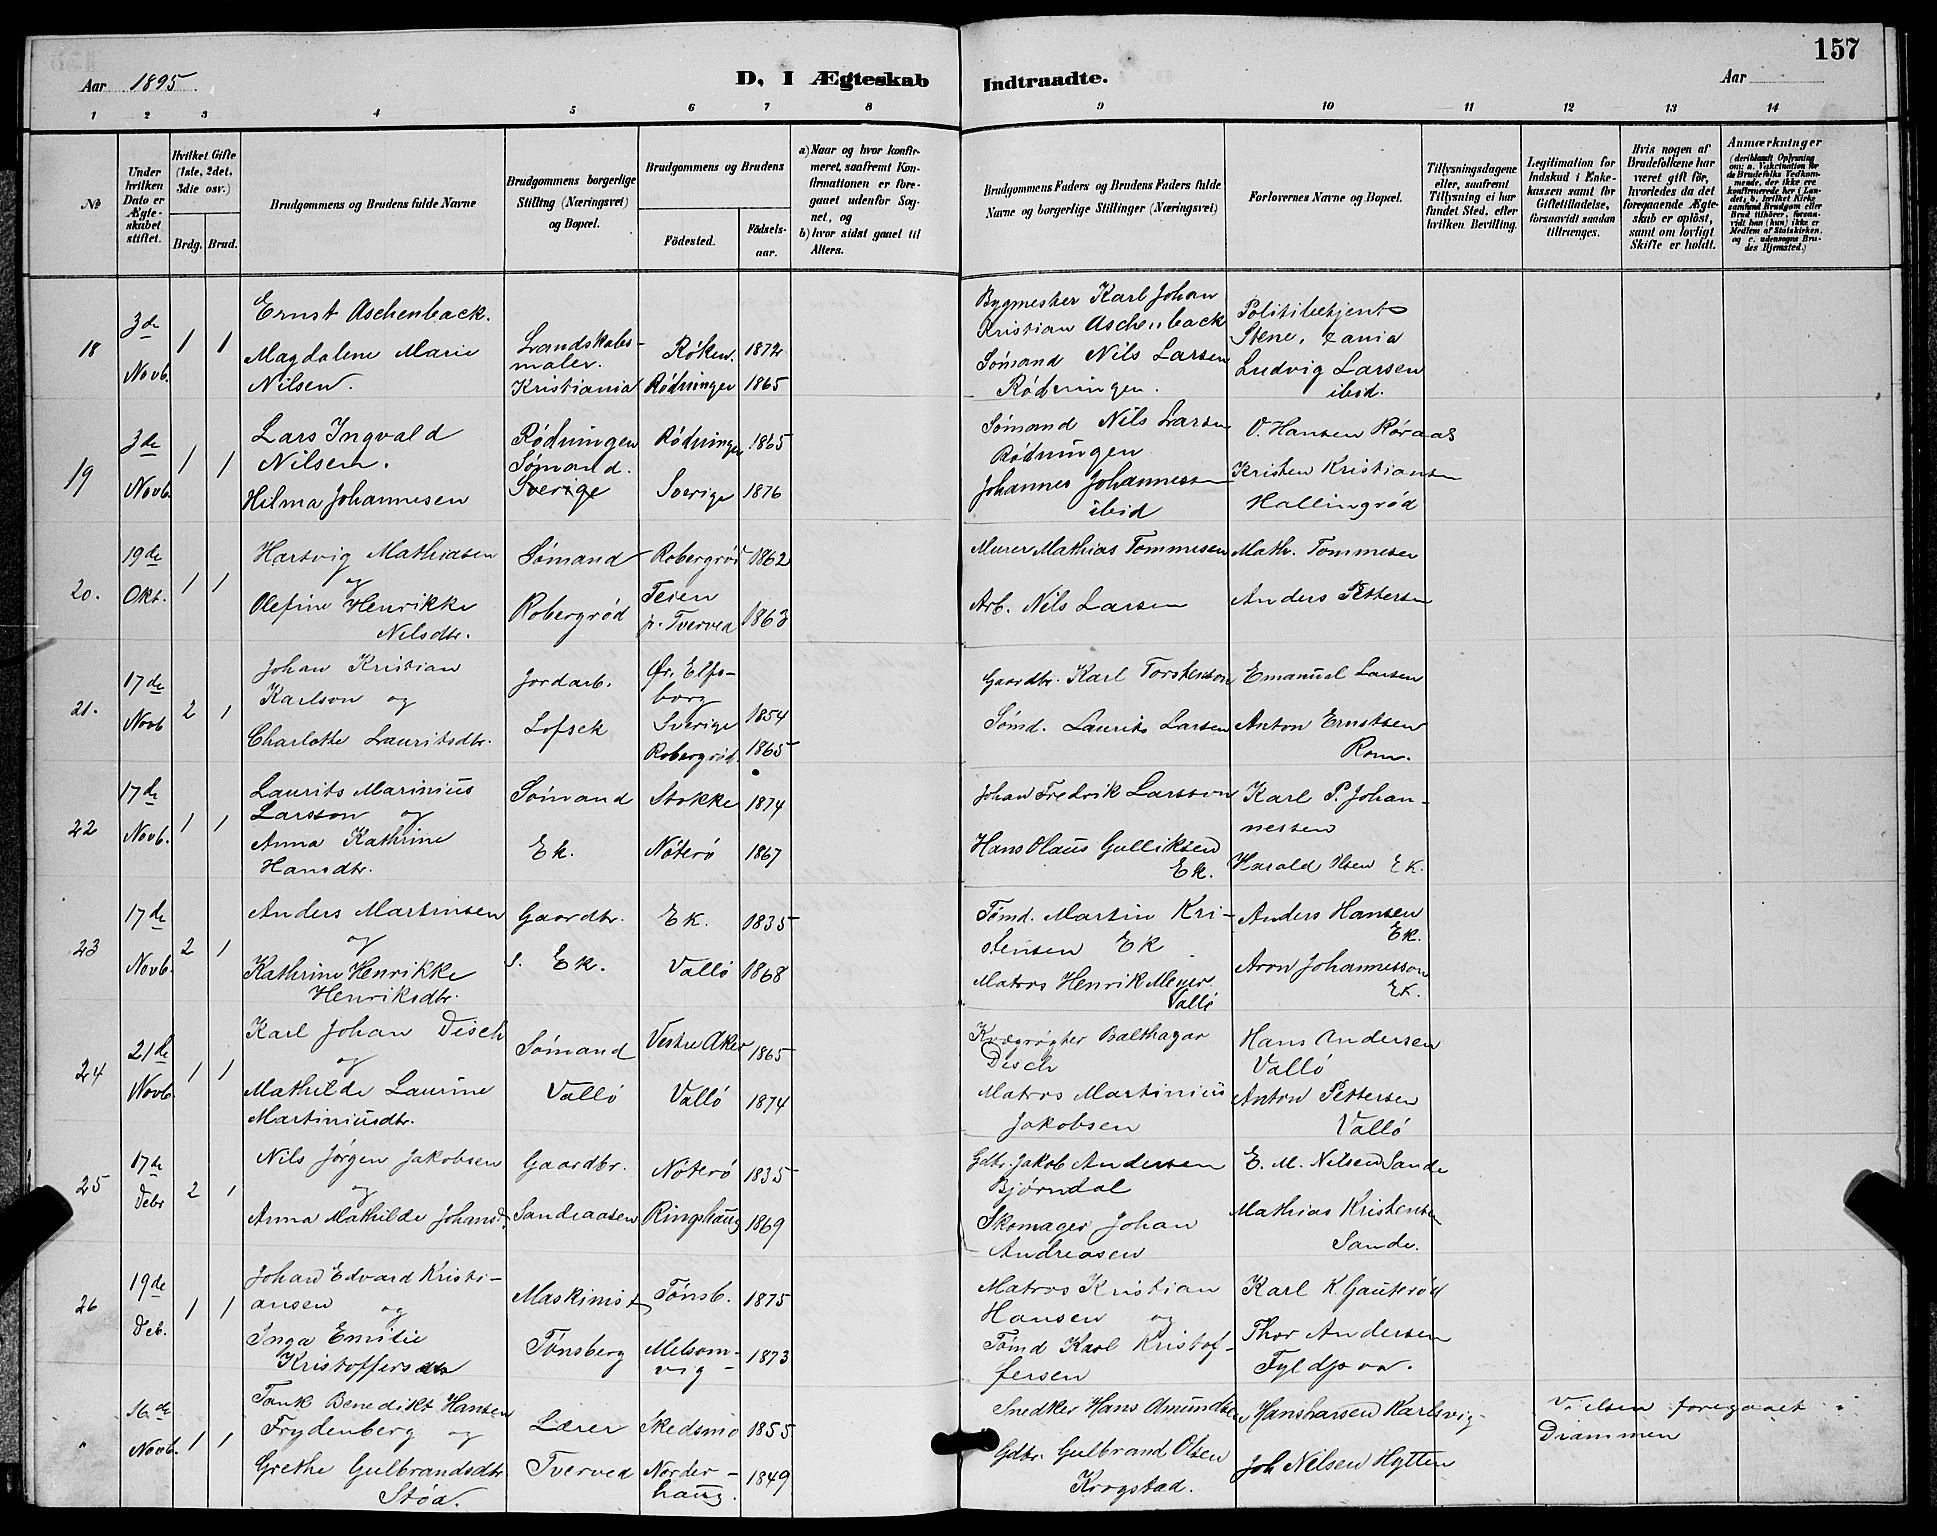 157
Aar 1895.
D, I Ægteskab Indtraadte.
Aar
1 2 3 4 5 6 7 8 9 10 11 12 13 14
№
Under hvilken Dato er Ægteskabet stiftet.
Hvilket Gifte (1ste, 2det, 3die osv.)
Brdg. Brud.
Brudgommens og Brudens fulde Navne
Brudgommens borgerlige Stilling (Næringsvei) og Bopæl.
Brudgommens og Brudens
Födested.
Födsels-aar.
a) Naar og hvor konfirmeret, saafremt Konfirmationen er foregaaet udenfor Sognet, og
b) hvor sidst gaaet til Alters.
Brudgommens Faders og Brudens Faders fulde Navne og borgerlige Stillinger (Næringsvei)
Forlovernes Navne og Bopæl.
Tillysningsdagene eller, saafremt Tillysning ei har fundet Sted, efter hvilken Bevilling.
Legitimation for Indskud i Enkekassen samt for Giftetilladelse, forsaavidt saadan tiltrænges.
Hvis nogen af Brudefolkene har været gift før, hvorledes da det foregaaende Ægteskab er opløst, samt om lovligt Skifte er holdt.
Anmærkninger
(deriblandt Oplysning om: a. Vakcination for de Brudefolks Vedkommende, der ikke ere konfirmerede her i Landet; b. hvilket Kirkesamfund Brudgom eller Brud tilhörer, forsaavidt han (hun) ikke er Medlem af Statskirken, og c. udensogns Brudes Hjemsted.)
18
3de Novb.
1 1
Ernst Aschenback.
Magdalene Marie
Nilsen.
Landskabs-
maler.
Kristiania
Röken. 1872
Rödningen 1865
Bygmester Karl Johan
Kristian Aschenback
Sömand Nils Larsen
Rödningen.
Politibetjent
Stene,
Ludvig Larsen
ibid.
19
3de Novb.
1 1
Lars Ingvald
Nilsen.
Hilma Johannesen
Rödningen
Sömand.
Sverige
Rödningen 1865
Sverige 1876
Sömand Nils Larsen
Rödningen
Johannes Johannessen
ibid
O. Hansen Röraas
Kristen Kristiansen
Hallingröd
20.
19de Okt.
1 1
Hartvig Mathiasen
og
Olefine Henrikke
Nilsdtr.
Sömand
Robergröd
Robergröd 1862
Teien
p. Tverved 1863
Murer Mathias Tommesen
Arb. Nils Larsen
Math. Tommesen
Anders Pettersen
21.
17de Novb
2 1
Johan Kristian
Karlson og
Charlothe Lauritsdtr.
Jordarb.
Lofsek
Ör. Elfs-
borg
Sverige 1854
Robergröd. 1865
Gaardbr. Karl Torstenson
Sömd. Laurits Larsen
Emanuel Larsen
Anton Ernstsen
Rom.
22
17de Novb.
1 1
Laurits Marinius
Larsson og
Anna Kathrine
Hansdtr.
Sömand
Ek.
Stokke 1874
Nöterö 1867
Johan Fredrik Larsson
Hans Olaus Gulliksen
Ek.
Karl P. Johan-
nessen
Harald Olsen Ek.
23
17de Novb.
2 1
Anders Martinsen
og
Kathrine Henrikke
Henriksdtr.
Gaardbr.
s. Ek.
Ek. 1835
Vallö 1868
Tömd. Martin Kri-
stensen Ek
Matros Henrik Meyer.
Vallö
Anders Hansen
Ek.
Aron Johannesson
Ek.
24
21de Novb.
1 1
Karl Johan Disch
og
Mathilde Laurine
Martiniusdtr.
Sömand
Vallö
Vestre Aker 1865
Vallö 1874
Kvægrögter Balthazar
Disch
Matros Martinius
Jakobsen
Hans Andersen
Vallö
Anton Pettersen
Vallö
25
17de Debr
2 1
Nils Jörgen Jakobsen
og
Anna Mathilde Johansd.
Gaardbr.
Sandeaasen
Nöterö 1835
Ringshaug 1869
Gdbr. Jakob Andersen
Björndal
Skomager Johan
Andreasen
E. M. Nilsen Sande
Mathias Kristensen
Sande.
26
19de Deb.
1 1
Johan Edvard Kristi-
ansen og
Inga Emilie
Kristoffersdtr
Maskinist
Tönsberg
Tönsb. 1875
Melsom-
vig- 1873
Matros Kristian
Hansen og
Tömd Karl Kristof-
fersen
Karl K Gauteröd
Thor Andersen
Fyldpaa.
"
16de Novb.
1 1
Tank Benedikt Hansen
Frydenberg og
Grethe Gulbrandsdtr
Stöa.
Lærer
Tverved
Skedsmo 1855
Norder-
haug. 1849
Snedker Hans Amundsen
Gdbr. Gulbrand Olsen
Krogstad.
Hans Larsen Karlsvig
Joh Nilsen Hytten
Vielsen foregaaet i
Drammen